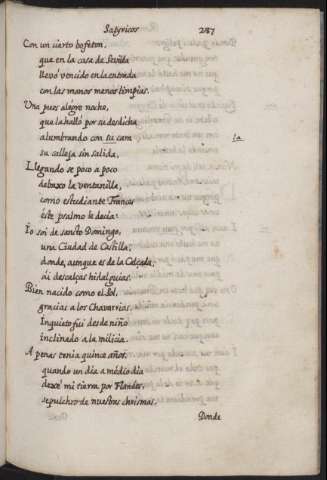 Satyricos 287
Con un cierto bofeton,
que en la casa de Sevilla
llevó vencido en la entrada
con las manos menos limpias.
Una pues alegre noche,
que la halló por su desdicha
alumbrando con su cara
su calleja sin salida,
la
Llegando se poco a poco
debaxo la ventanilla,
como estudiante Frances
éste psalmo le decia:
Io soi de sancto Domingo,
una Ciudad de Castilla,
donde, aunque es de la Calçada,
ái descalças hidalguias.
Bien nacido como el Sol,
gracias a los Chavarrias.
Inquieto fui desde niño
inclinado a la milicia.
A penas tenia quince años,
quando un dia a médio dia
dexé mi tierra por Flandes,
sepulchro de nuestras chrismas.
Donde